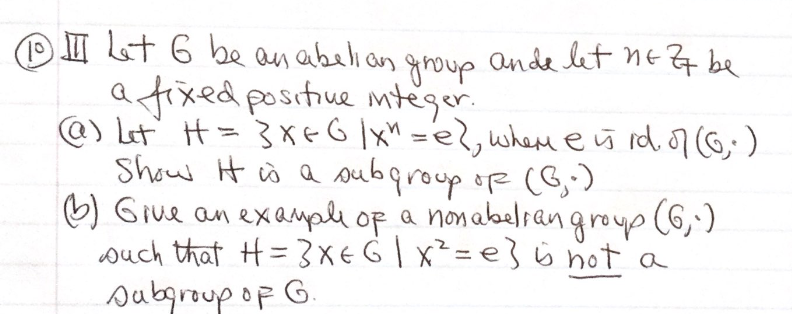 ⑩ III Let G be an abelian group ande let n∈ℤ+ be
a fixed positive integer.
(a) Let H = {x∈G | xⁿ = e}, where e is id. of (G,·)
Show H is a subgroup of (G,·)
(b) Give an example of a nonabelian group (G,·)
such that H = {x∈G | x² = e} is not a
subgroup of G.